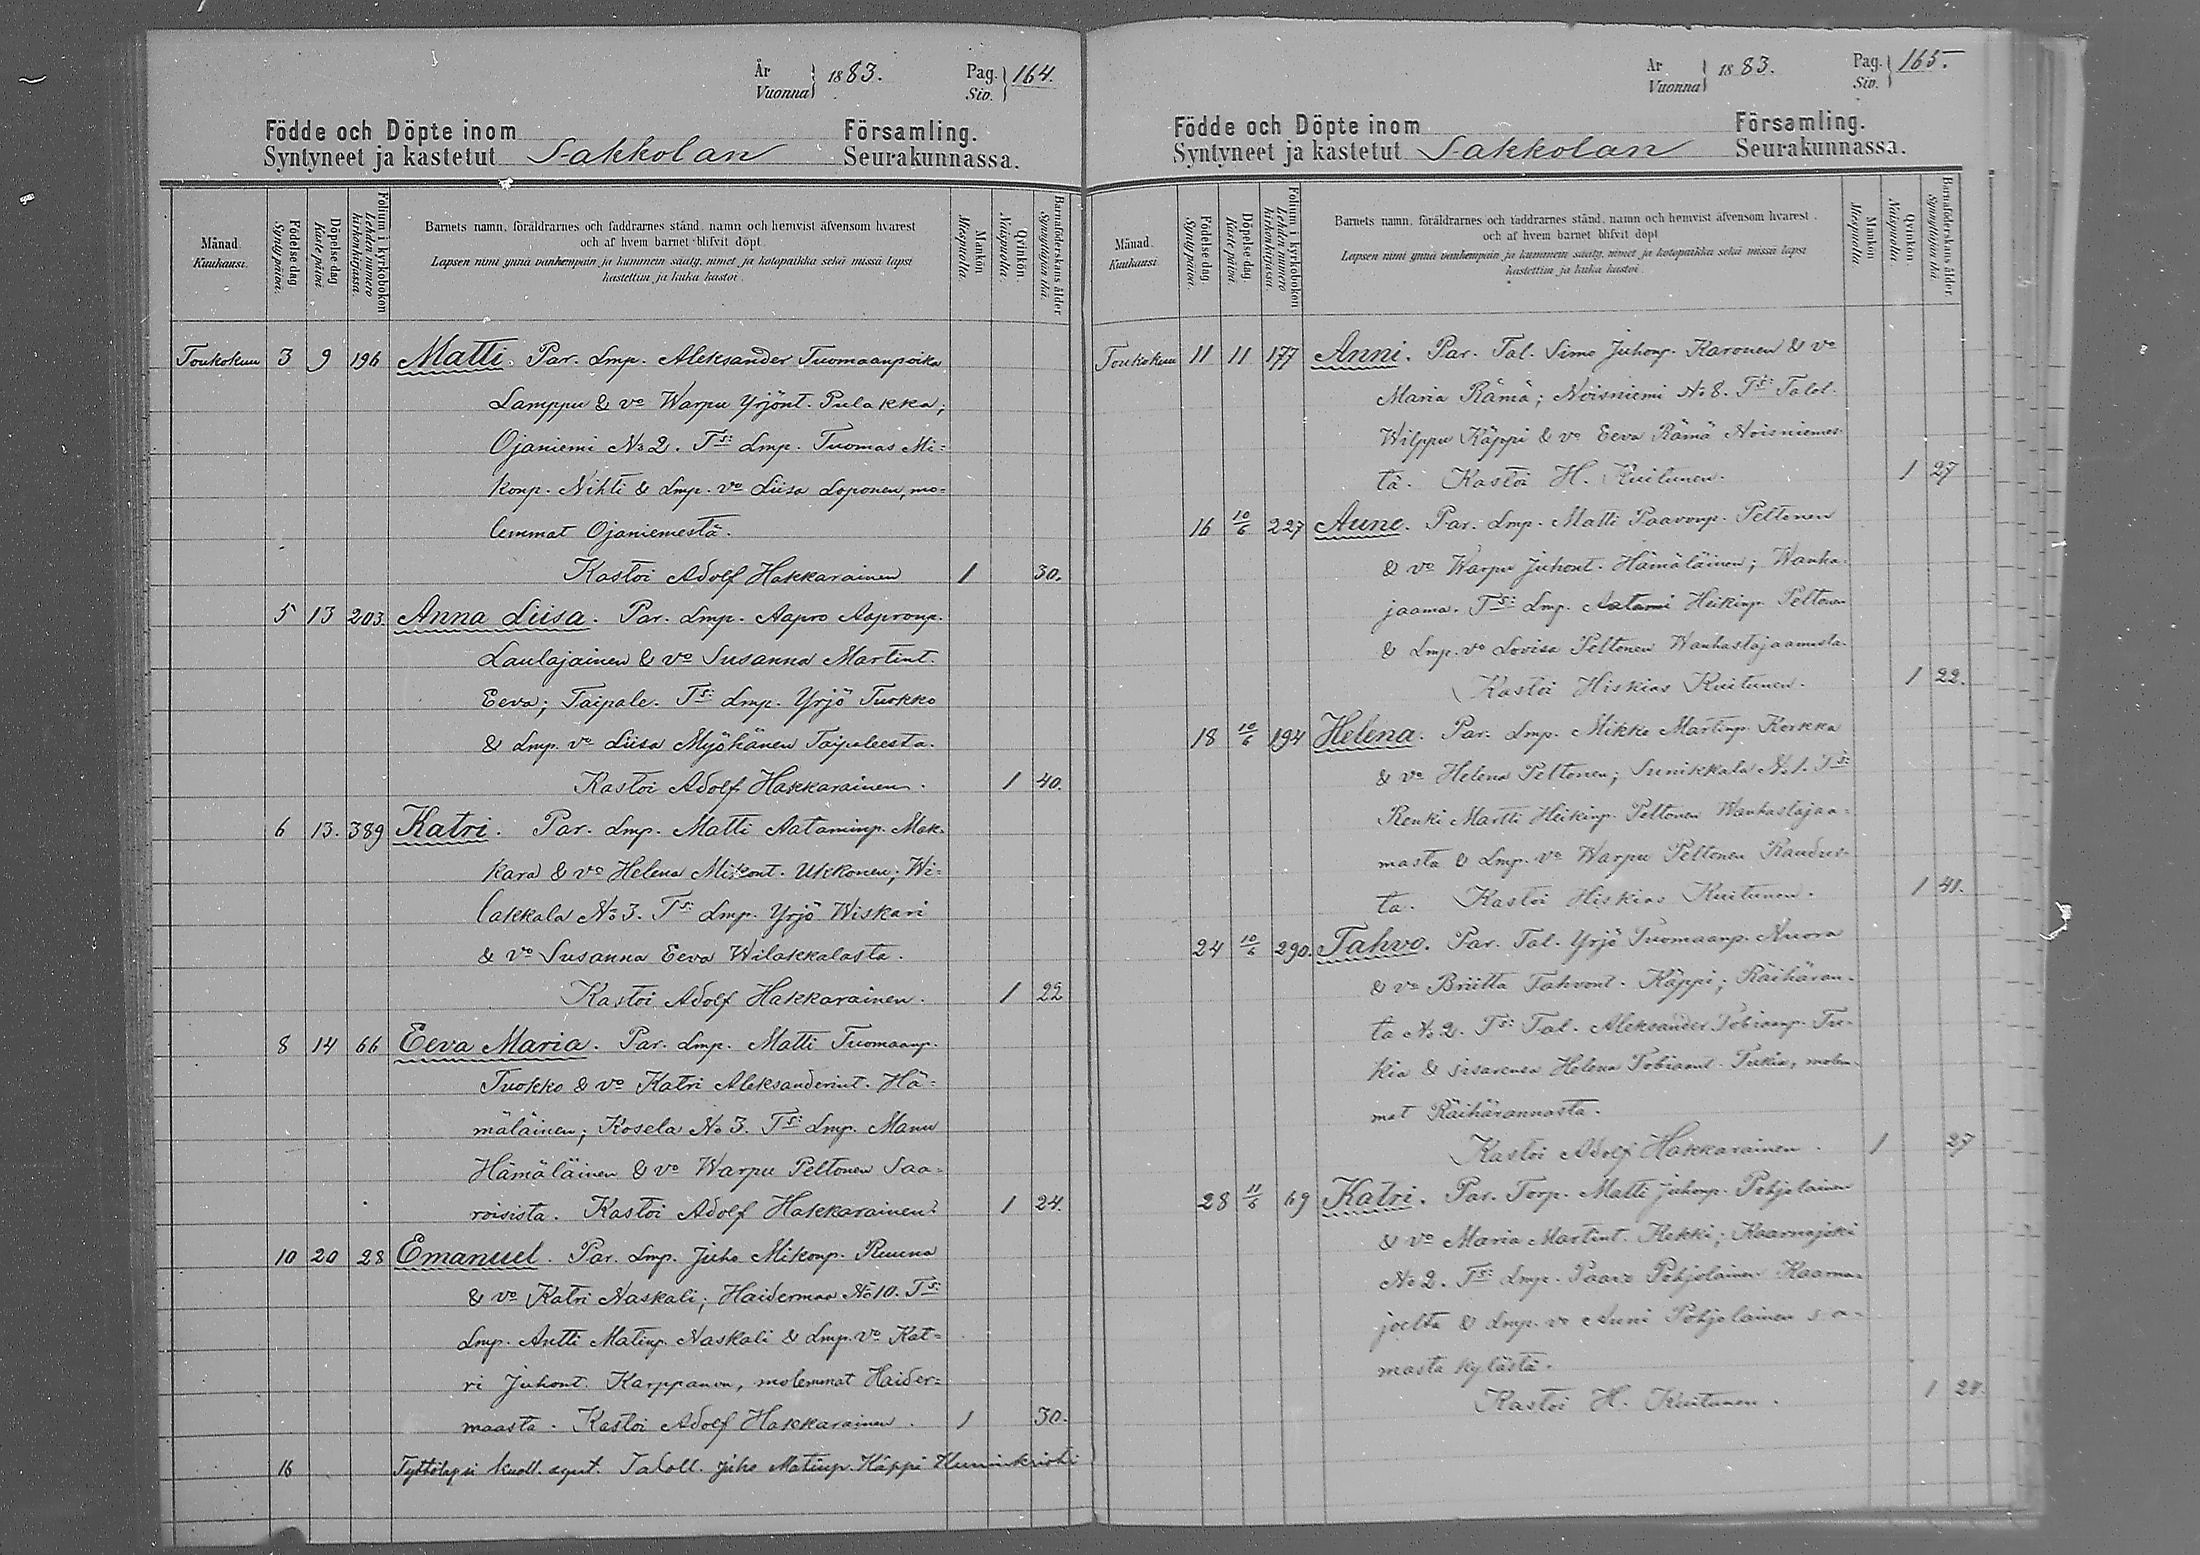 År
Vuonna } 1883.
Pag.
Siv. } 164.
Födde och Döpte inom Församling.
Syntyneet ja kastetut Sakkolan Seurakunnassa.
Månad.
Kuukausi.
Födelsedag.
Syntymäpäivä.
Döpelsedag
Kastepäivä
Folium i kyrkoboken
Lehden numero
kirkonkirjassa.
Barnets namn, föräldrarnes och faddrarnes stånd, namn och hemvist äfvensom hvarest
och af hvem barnet blifvit döpt.
Lapsen nimi ynnä vanhempain ja kummein sääty, nimet ja kotopaikka sekä missä lapsi
kastettiin ja kuka kastoi.
Mankön
Miespuolta.
Qvinkön.
Naispuolta.
Barnaföderskans ålder
Synnyttäjän ikä.
Toukokuu 3 9 196 Matti. Par. Lmp. Aleksander Tuomaanpoika
Lamppu & vo Warpu Yrjönt. Pulakka;
Ojaniemi No 2. Ts: Lmp. Tuomas Mi=
konp. Nihti & Lmp. vo Liisa Loponen, mo=
lemmat Ojaniemestä.
Kastoi Adolf Hakkarainen 1 30.
5 13 203. Anna Liisa. Par. Lmp. Aapro Aapronp.
Laulajainen & vo Susanna Martint.
Eeva; Taipale. Ts: Lmp. Yrjö Tuokko
& Lmp. vo Liisa Myöhänen Taipaleesta.
Kastoi Adolf Hakkarainen. 1 40.
6 13. 389 Katri. Par. Lmp. Matti Aataminp. Mak=
kara & vo Helena Mikont. Ukkonen; Wi=
lakkala No 3. Ts: Lmp. Yrjö Wiskari
& vo Susanna Eeva Wilakkalasta.
Kastoi Adolf Hakkarainen. 1 22
8 14 66 Eeva Maria. Par. Lmp. Matti Tuomaanp.
Tuokko & vo Katri Aleksanderint. Hä=
mäläinen; Kosela No 3. Ts: Lmp. Manu
Hämäläinen & vo Warpu Peltonen Saa=
roisista. Kastoi Adolf Hakkarainen. 1 24.
10 20 28 Emanuel. Par. Lmp. Juho Mikonp. Ruuna
& vo Katri Naskali; Haidermaa No 10. Ts:
Lmp. Antti Matinp. Naskali & Lmp. vo Kat=
ri Juhont. Karppanen, molemmat Haider=
maasta. Kastoi Adolf Hakkarainen. 1 30.
16 Tyttölapsi kuoll. synt. Taloll. Juho Matinp. Käppi
År
Vuonna } 1883.
Pag.
Siv. } 165.
Födde och Döpte inom Församling.
Syntyneet ja kastetut Sakkolan Seurakunnassa.
Månad.
Kuukausi
Födelsedag
Syntymäpäivä.
Döpelsedag.
Kastepäivä
Folium i kyrkoboken
Lehden numero
kirkonkirjassa.
Barnets namn, föräldrarnes och faddrarnes stånd, namn och hemvist äfvensom hvarest
och af hvem barnet blifvit döpt
Lapsen nimi ynnä vanhempain ja kummein sääty, nimet ja kotopaikka sekä missä lapsi
kastettiin ja kuka kastoi.
Mankön
Miespuolta.
Qvinkön
Naispuolta.
Barnaföderskans ålder.
Synnyttäjän ikä.
Toukokuu 11 11 177 Anni. Par. Tal. Simo Juhonp. Karonen & vo
Maria Rämä; Noisniemi No 8. Ts: Talol.
Wilppu Käppi & vo Eeva Rämä Noisniemes=
tä. Kastoi H. Kuitunen. 1 27
16 10/6 227. Aune. Par. Lmp. Matti Paavonp. Peltonen
& vo Warpu Juhont. Hämäläinen; Wanha=
jaama. Ts: Lmp. Aatami Heikinp. Peltonen
& Lmp. vo Lovisa Peltonen Wanhastajaamasta.
Kastoi Hiskias Kuitunen. 1 22.
18 10/6 194 Helena. Par. Lmp. Mikko Martinp. Korkka
& vo Helena Peltonen; Sunikkala No 1. Ts:
Renki Martti Heikinp. Peltonen Wanhastajaa=
masta & Lmp. vo Warpu Peltonen
ta. Kastoi Hiskias Kuitunen. 1 41.
24 10/6 290. Tahvo. Par. Tal. Yrjö Tuomaanp. Nuora
& vo Briitta Tahvont. Käppi; Räihäran=
ta No 2. Ts: Tal. Aleksander Tobiaanp. Tu=
kia & sisarensa Helena Tobiaant. Tukia, molem=
mat Räihärannasta.
Kastoi Adolf Hakkarainen. 1 27
28 11/6 69 Katri. Par. Torp. Matti Juhonp. Pohjolainen
& vo Maria Martint. Kekki; Kaarnajoki
No 2. Ts: Lmp. Paavo Pohjolainen Kaarna=
joelta & Lmp. vo Anni Pohjolainen sa=
masta kylästä.
Kastoi H. Kuitunen. 1